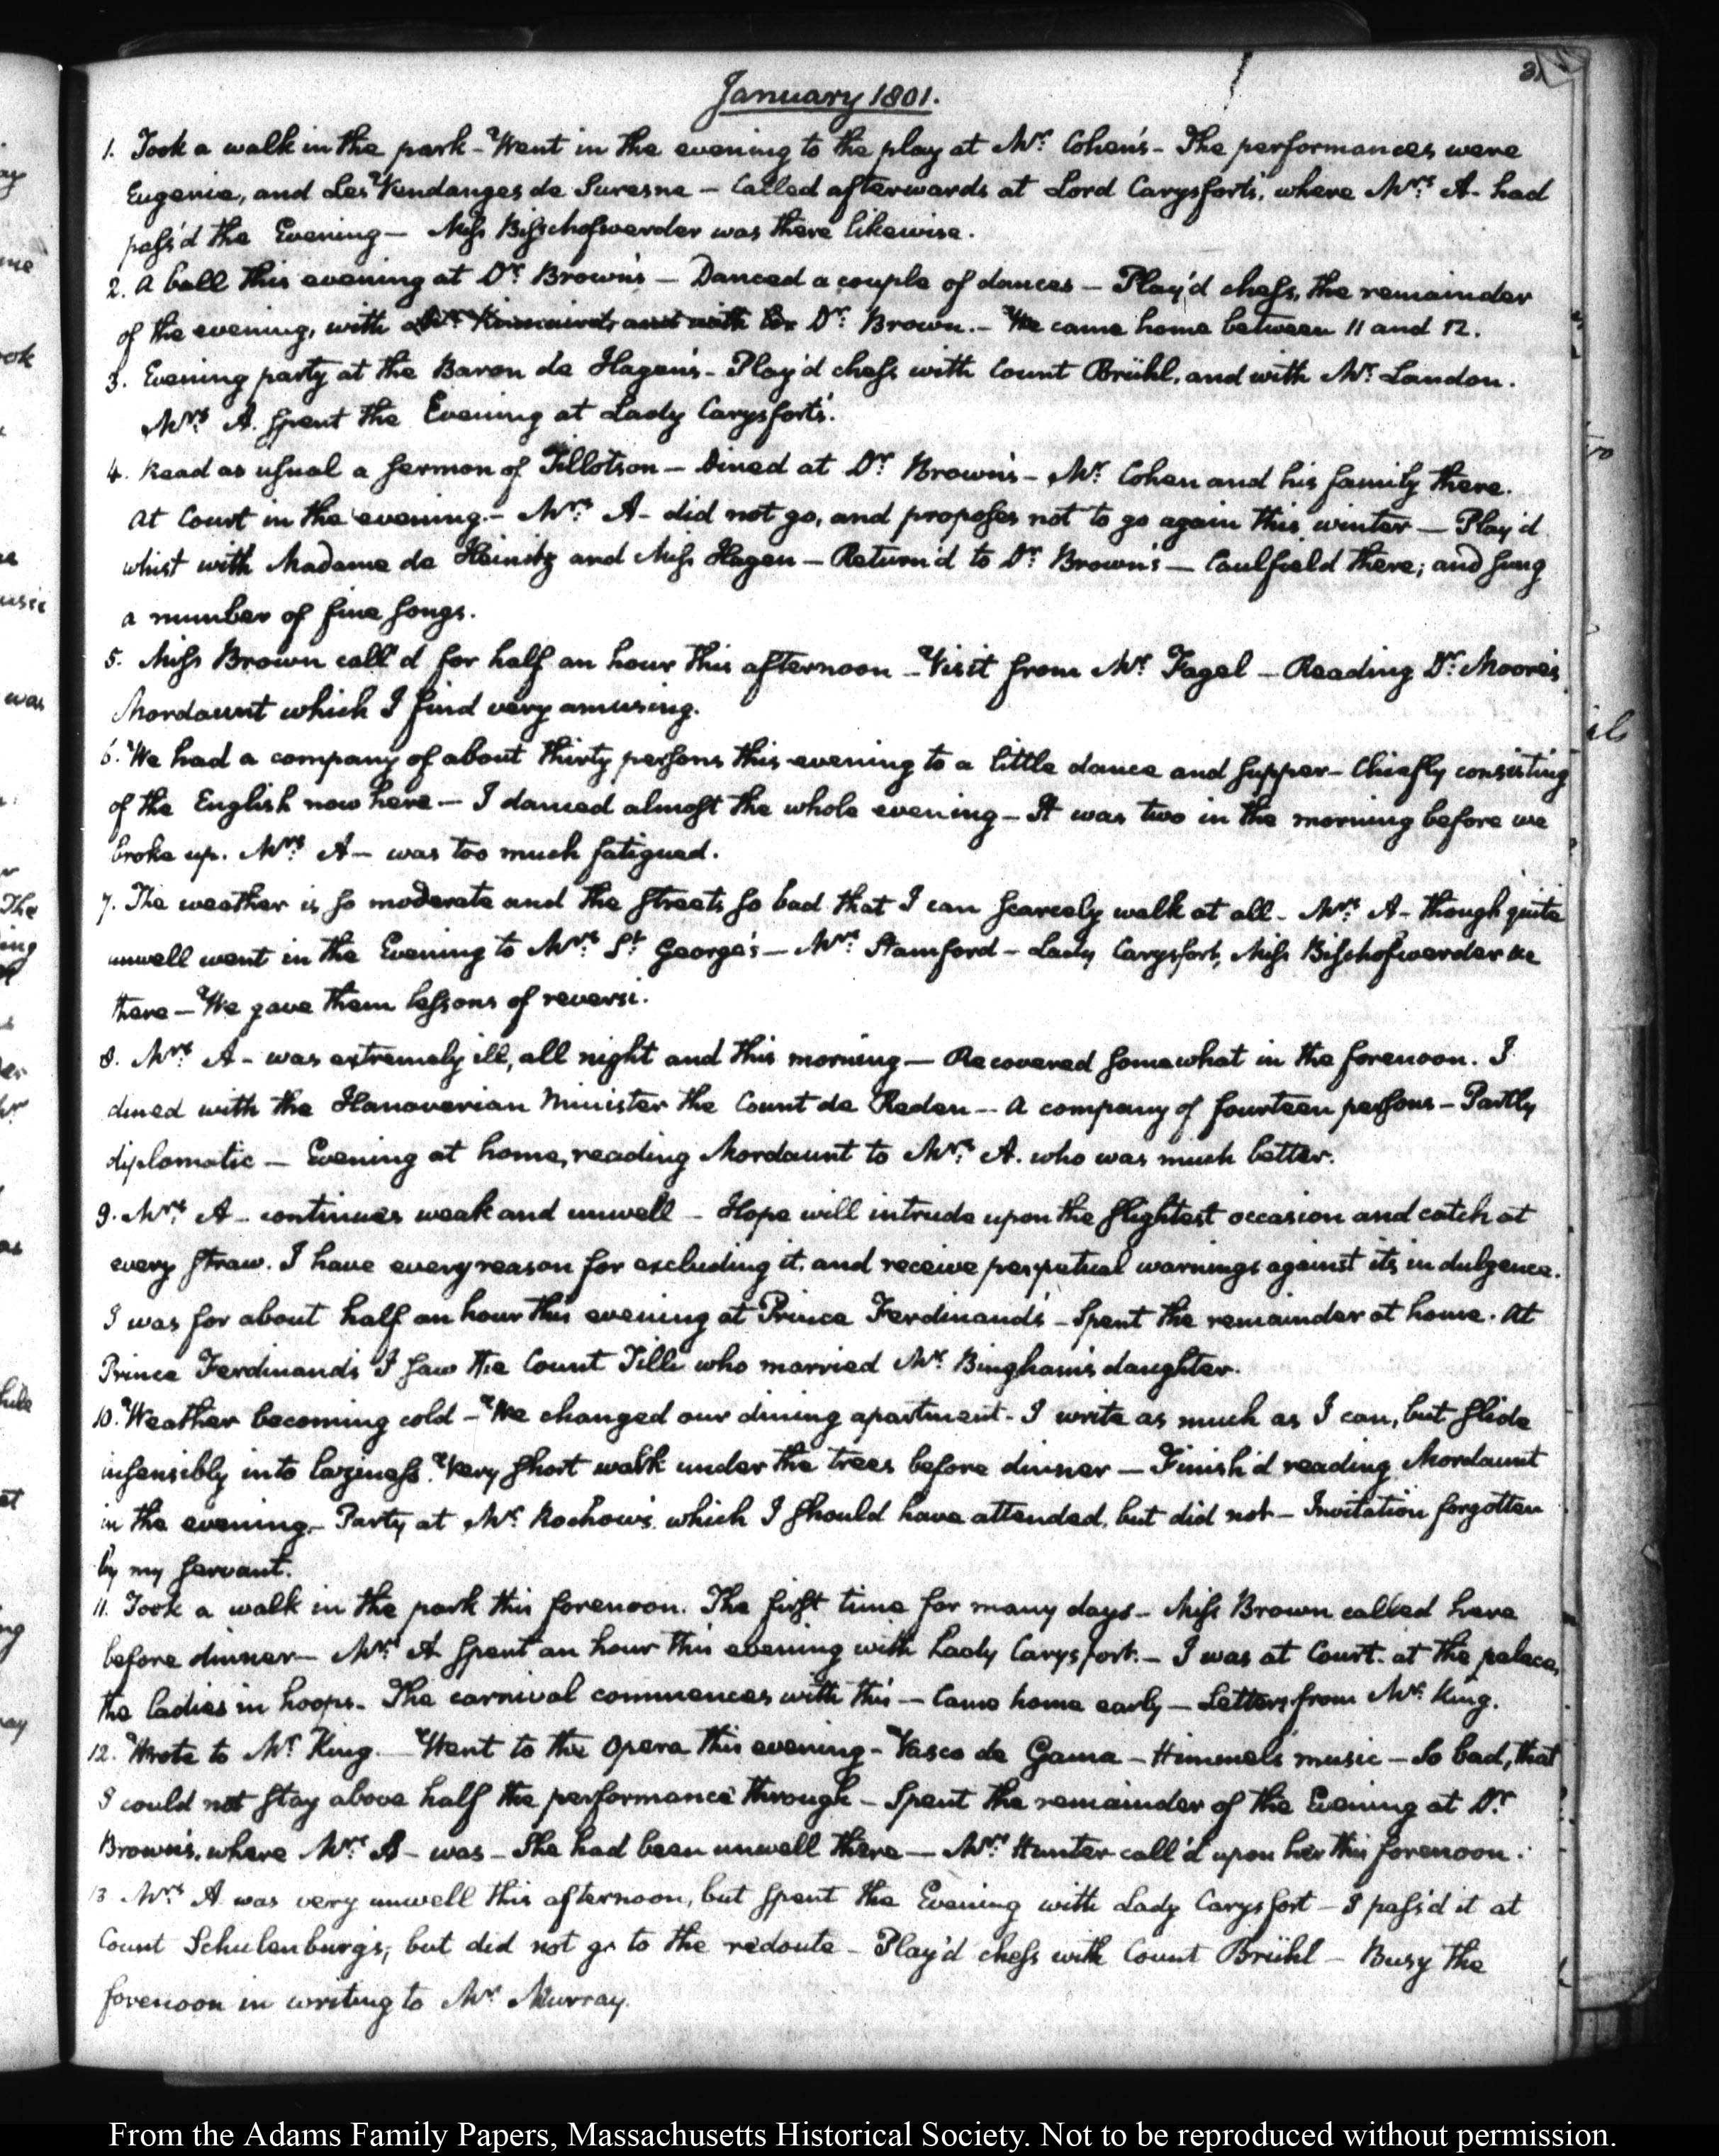 January 1801.
1. Took a walk in the park - Went in the evening to the play at Mr. Cohen's - The performances were
Eugenie, and Les Vendanges de Suresne — Called afterwards at Lord Carysfort's, where Mrs. A- had
pass'd the Evening — Miss Bischofswerder was there likewise.
2. A ball this evening at Dr. Brown's — Danced a couple of dances — Play'd chess, the remainder
of the evening, with Dr. Brown. — We came home between 11 and 12.
3. Evening party at the Baron de Hagen's - Play'd chess with Count Brühl, and with Mr. Landon.
Mrs. A. spent the Evening at Lady Carysfort's.
4. Read as usual a sermon of Tillotson — Dined at Dr. Brown's - Mr. Cohen and his family there.
At Court in the evening. - Mrs. A- did not go, and proposes not to go again this winter — Play'd
whist with Madame de Heinitz and Miss Hagen — Return'd to Dr. Brown's — Caulfield there; and sung
a number of fine songs.
5. Miss Brown call'd for half an hour this afternoon — Visit from Mr. Fagel — Reading Dr. Moore's
Mordaunt which I find very amusing.
6. We had a company of about thirty persons this evening to a little dance and supper — Chiefly consisting
of the English now here — I danced almost the whole evening — It was two in the morning before we
broke up. Mrs. A — was too much fatigued.
7. The weather is so moderate and the streets so bad that I can scarcely walk at all - Mrs. A - though quite
unwell went in the Evening to Mrs. St. George's — Mrs. Stamford — Lady Carysfort, Miss Bischofswerder &c
there — We gave them lessons of reversi.
8. Mrs. A - was extremely ill, all night and this morning — Recovered somewhat in the forenoon. I
dined with the Hanoverian Minister the Count de Reden — A company of fourteen persons — Partly
diplomatic — Evening at home, reading Mordaunt to Mrs. A. who was much better.
9. Mrs. A - continues weak and unwell - Hope will intrude upon the slightest occasion and catch at
every straw. I have every reason for excluding it, and receive perpetual warnings against its indulgence.
I was for about half an hour this evening at Prince Ferdinand's - Spent the remainder at home. At
Prince Ferdinand's I saw the Count Tilli who married Mr. Bingham's daughter.
10. Weather becoming cold — We changed our dining apartment - I write as much as I can, but slide
insensibly into laziness. Very short walk under the trees before dinner — Finish'd reading Mordaunt
in the evening - Party at Mr. Rochow's which I should have attended, but did not — Invitation forgotten
by my servant.
11. Took a walk in the park this forenoon. The first time for many days - Miss Brown called here
before dinner — Mrs. A spent an hour this evening with Lady Carysfort. — I was at Court - at the palace,
the ladies in hoops - The carnival commences with this — Came home early — Letters from Mr. King.
12. Wrote to Mr. King. — Went to the Opera this evening - Vasco de Gama — Himmel's music — So bad, that
I could not stay above half the performance through — Spent the remainder of the Evening at Dr.
Brown's, where Mrs. A - was - She had been unwell there — Mrs. Hunter call'd upon her this forenoon.
13 Mrs. A was very unwell this afternoon, but spent the Evening with Lady Carysfort — I pass'd it at
Count Schulenburg's, but did not go to the redoute — Play'd chess with Count Brühl — Busy the
forenoon in writing to Mr. Murray.
From the Adams Family Papers, Massachusetts Historical Society. Not to be reproduced without permission.